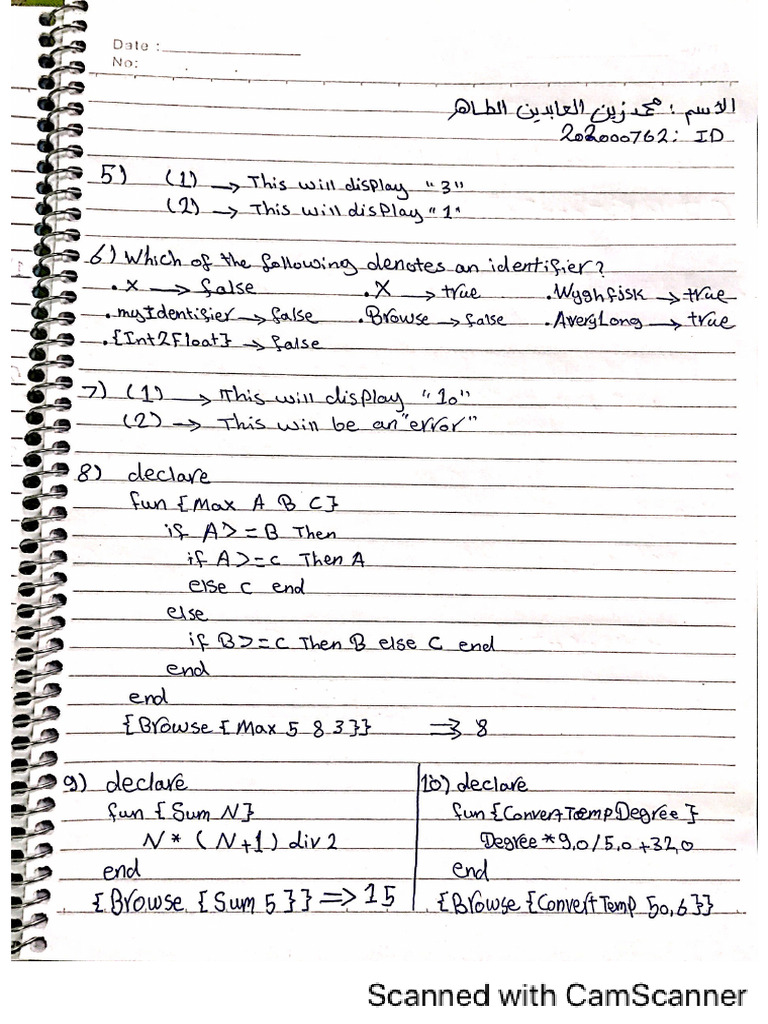 Date :
No:
الاسم : محمد زين العابدين الطاهر
202000762: ID
5) (1) → This will display "3"
(2) → This will display "1"
6) Which of the following denotes an identifier?
.x → false .X → true .Wyghfjsk → true
.myIdentifier → false .Browse → false .AveryLong → true
.{Int2Float} → false
7) (1) → This will display "10"
(2) → This will be an "error"
8) declare
fun {Max A B C}
if A>=B Then
if A>=C Then A
else C end
else
if B>=C Then B else C end
end
end
{Browse {Max 5 8 3}} ⇒ 8
9) declare
fun {Sum N}
N * (N+1) div 2
end
{Browse {Sum 5}} => 15
10) declare
fun {ConvertTemp Degree}
Degree * 9,0/5,0 +32,0
end
{Browse {ConvertTemp 50,6}}
Scanned with CamScanner